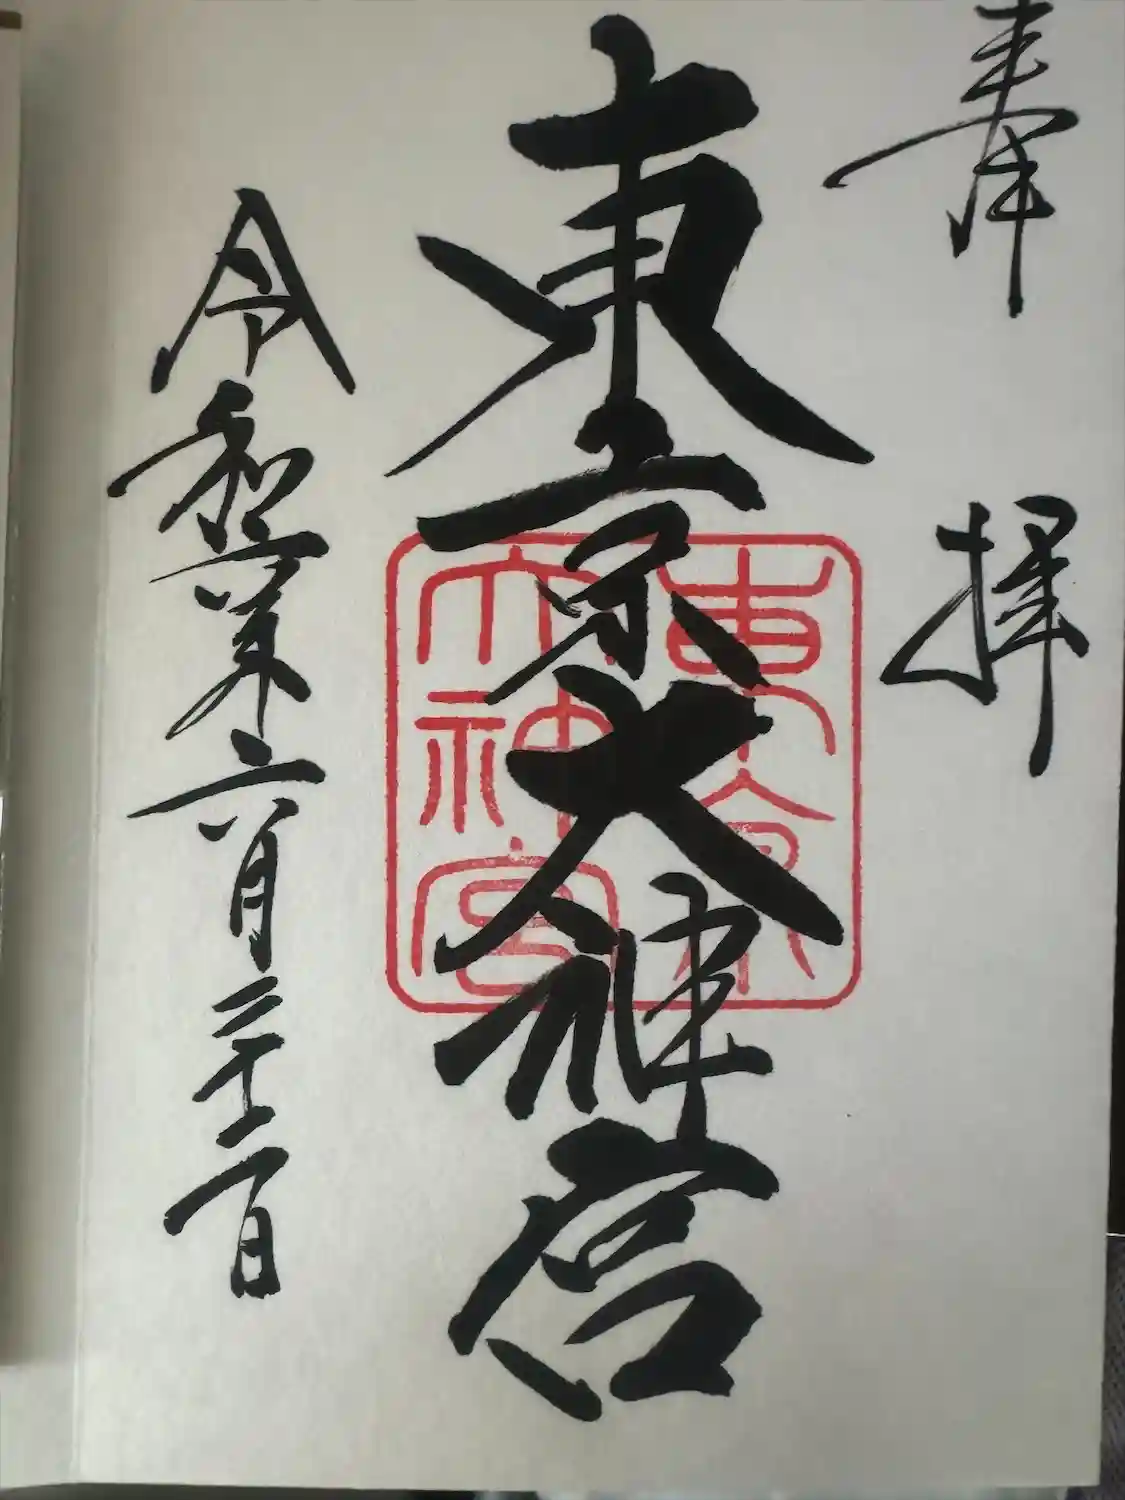 奉拝
東京大神宮
令和六年六月二十二日
東京
大神宮